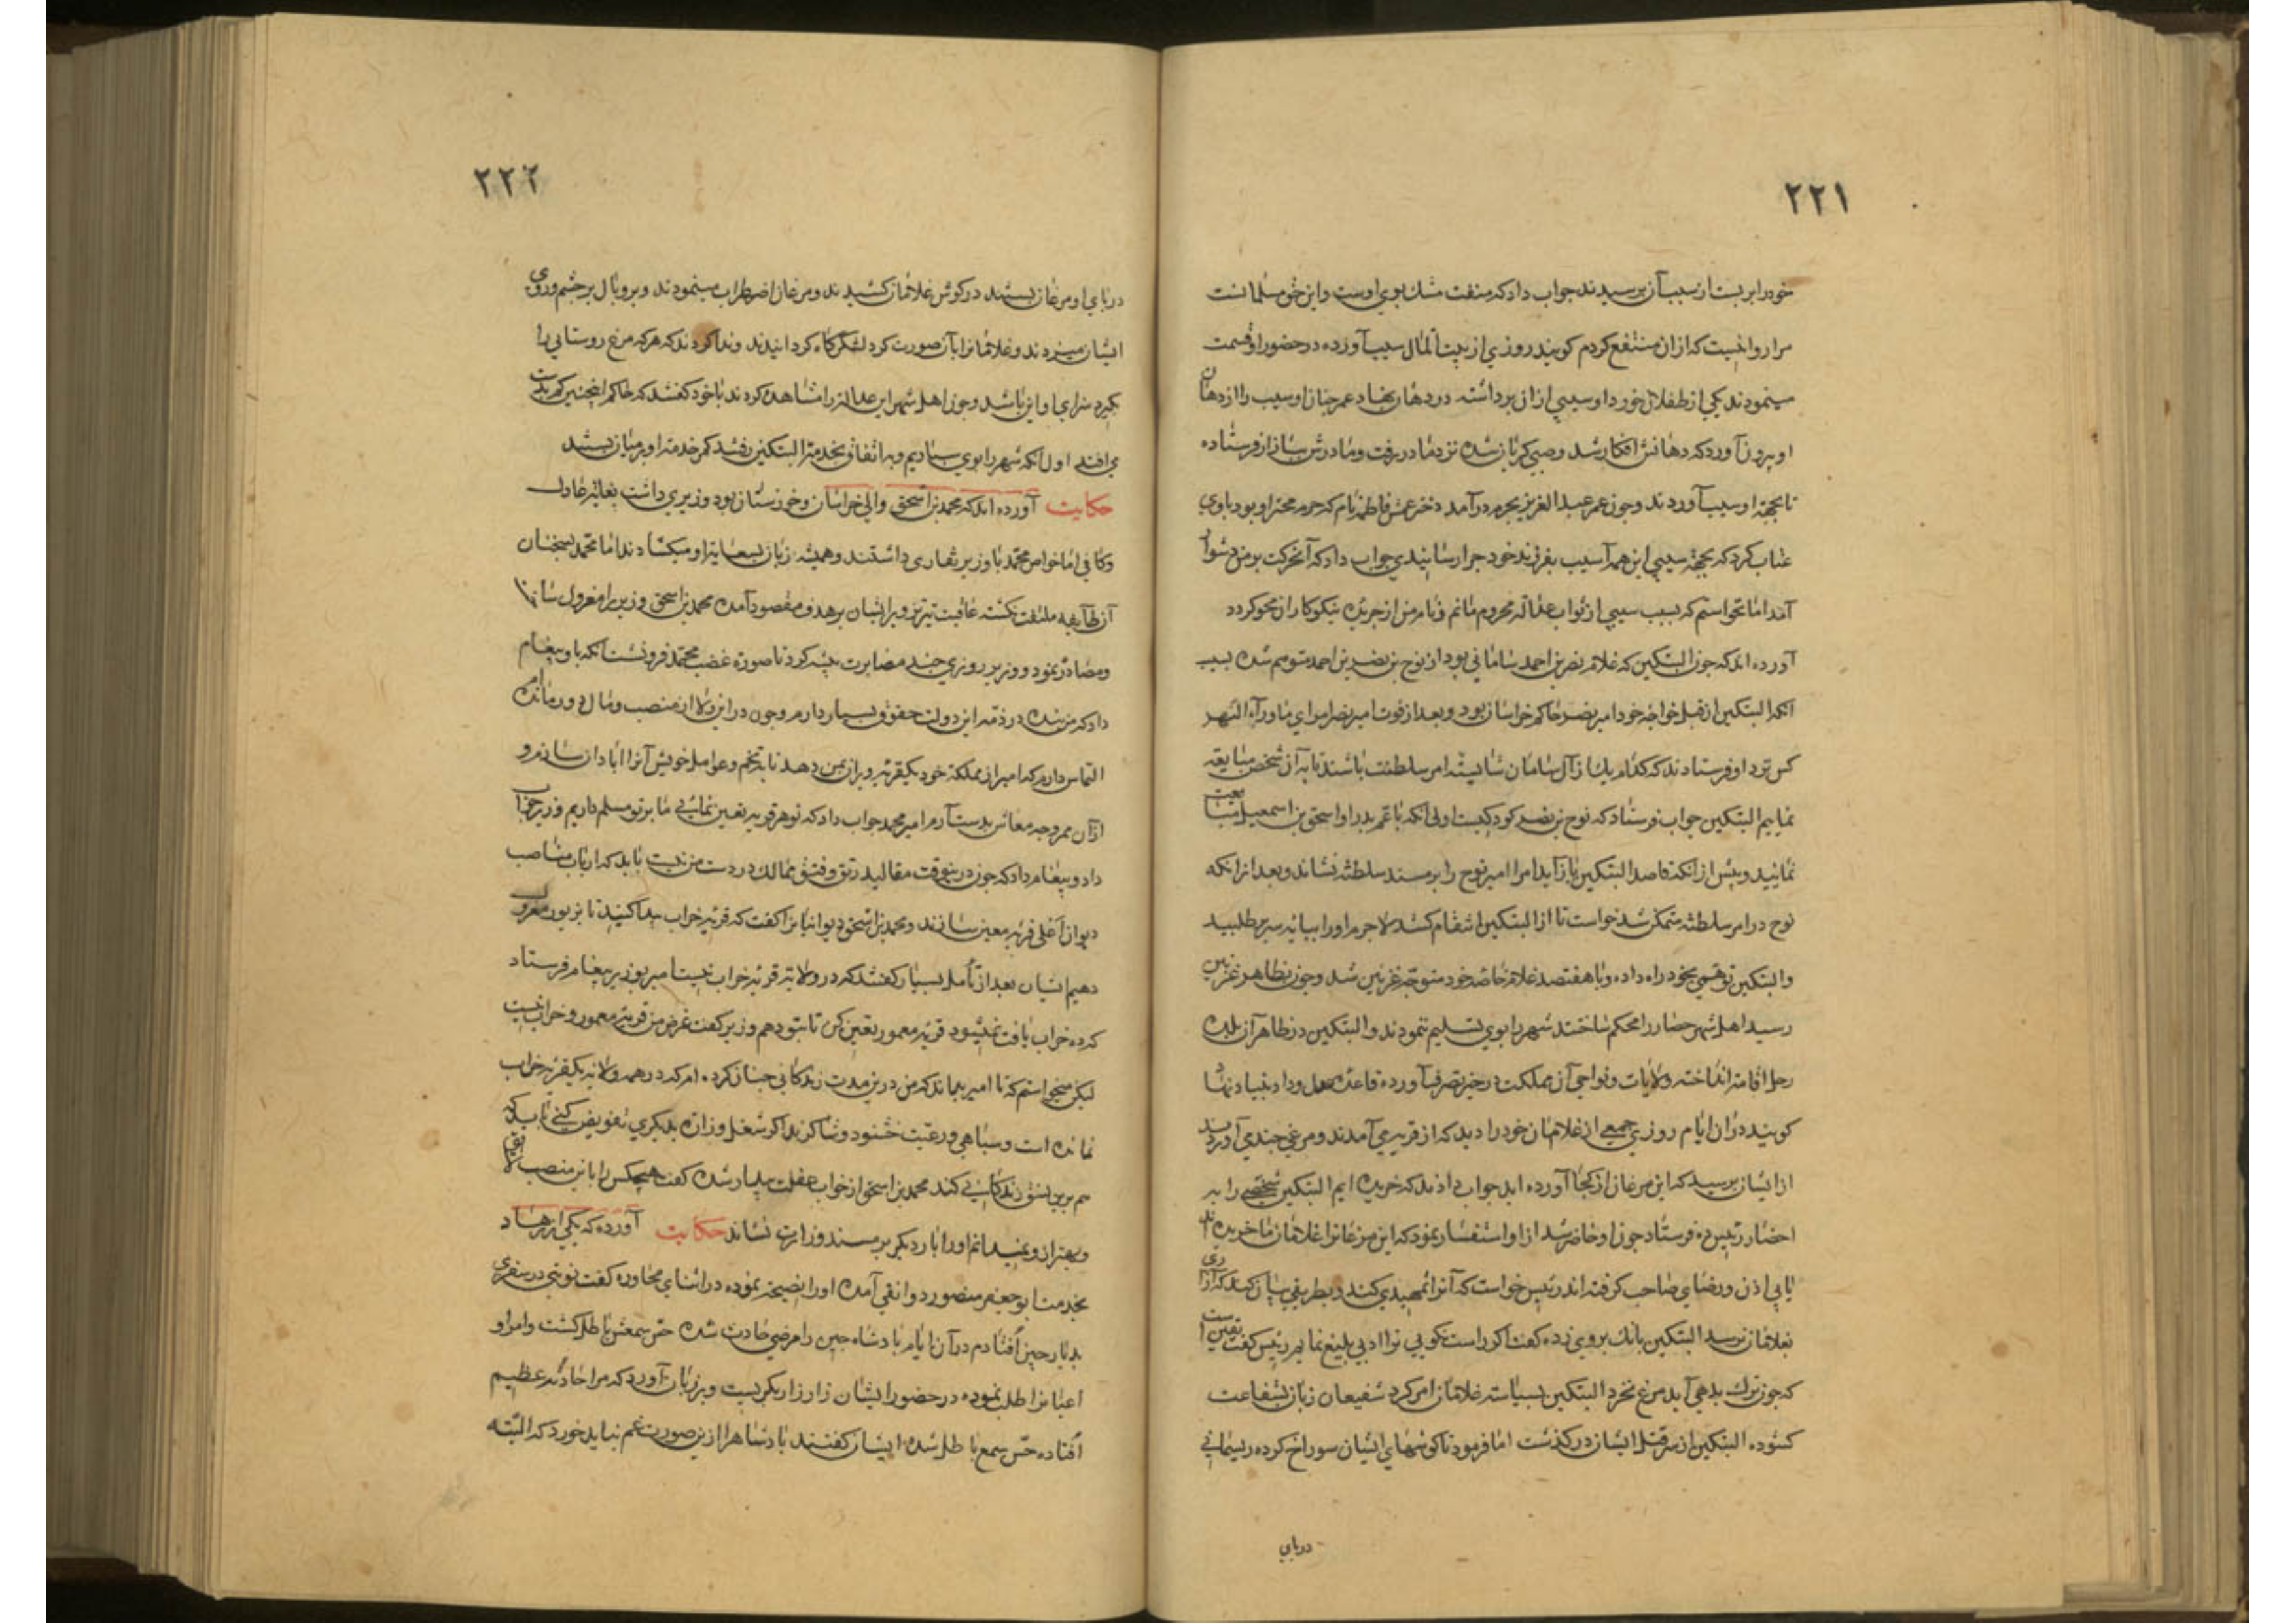 ٢٢١
خود را بربست از سبب آن پرسیدند جواب داد که منفعت مشک بوی اوست و این حق مسلمانست
مرا روا نیست که ازان منتفع کردم کویند روزی از بیت المال سیب آورده در حضور او قسمت
مینمودند یکی از طفلان خورد او سیبی ازان برداشته در دهان نهاد عمر جنان او سیب را از دهان
او بیرون آورد که دهانش افکار شد و صبی کریان شده نزد مادر رفت و مادرش ببازار فرستاده
تا بجهة او سیب آوردند و جون عمر عبد العزیز بحرم درآمد دختر عمش فاطمه نام که حرم محترم او بود باوی
عتاب کرد که بجهة سیبی این همه آسیب بفرزند خود جرا رسانیدی جواب داد که آن حرکت بر من دشوار
آمد اما نخواستم که بسبب سیبی از ثواب عدالة محروم مانم و نام من از جریده نیکوکاران محو کردد
آورده اند که جون البتکین که غلام نصر بن احمد سامانی بود از نوح بن نصر بن احمد متوهم شده بسبب
آنکه البتکین از قبل خواجه خود امیر نصر حاکم خراسان بود و بعد از فوت امیر نصر امرای ماوراء النهر
کس نزد او فرستادند که کدام یک از آل سامان شایسته امر سلطنت باشند تا به آن شخص متابعة
نماییم البتکین جواب فرستاد که نوح بن نصر کودکیست اولی آنکه با عم پدر او اسحق بن اسمعیل متابعت
نمایید و پیش از آنکه قاصد البتکین باز آید امرا امیر نوح را بر مسند سلطنة نشاند و بعد از انکه
نوح در امر سلطنة متمکن شد خواست تا از البتکین انتقام کشد لاجرم او را ببایه سریر طلبید
و البتکین توهمی بخود راه داده و با هفتصد غلام خاصه خود متوجه غزنین شد و جون بظاهر غزنین
رسید اهل شهر حصار را محکم ساختند شهر را بوی تسلیم ننمودند و البتکین در ظاهر آن بلده
رحل اقامة انداخته ولایات و نواحی آن مملکت در حیز تصرف آورده قاعده عدل و داد بنیاد نهاد
کویند دران ایام روزی جمعی از غلامان خود را دید که از قریه می آمدند و مرغی جندی آوردند
از ایشان پرسید که این مرغان از کجا آورده اید جواب دادند که خریده ایم البتکین شخصی را به
احضار رئیس ده فرستاد جون او حاضر شد از او استفسار نمود که این مرغانرا غلامان ما خریده اند
یا بی اذن و رضای صاحب کرفته اند رئیس خواست که آنرا تمهیدی کند و بطریقی بیان کند که آزاری
بغلامان نرسد البتکین بانک بروی زده کفت اکر راست نکویی ترا ادبی بلیغ نمایم رئیس کفت یقین است
که جون ترک بدهی آید مرغ نخرد البتکین بسیاسة غلامان امر کرد شفیعان زبان شفاعت
کشوده البتکین از سر قتل ایشان در کذشت اما فرمود تا کوشهای ایشان سوراخ کرده ریسمانی
در پای
٢٢٢
در پای او مرغان بستند در کوش غلامان کشیدند و مرغان اضطراب مینمودند و بر و بال بر جشم و روی
ایشان میزدند و غلامانرا بآن صورت کرد لشکرکاه کردانیدند و ندا کردند که هر که مرغ روستایی را
بکیرد سزای او این باشد و جون اهل شهر این عدالة را مشاهده کردند با خود کفتند که حاکم اینجنین کم بدست
می افتد اول آنکه شهر را بوی سپاریم و به اتفاق بخدمة البتکین رفتند کمر خدمة او بر میان بستند
حکایت آورده اند که محمد بن اسحق والی خراسان و خوزستان بود وزیری داشت بغایة عادل
و کافی اما خواص محمد با وزیر نقاری داشتند و همیشه زبان بسعایة او میکشادند اما محمد بسخنان
آن طایفه ملتفت نکشته عاقبت تیر تزویر ایشان بر هدف مقصود آمده محمد بن اسحق وزیر را معزول ساخته
و مصادره نمود و وزیر روزی جند مصابرت پیشه کرد تا صورة غضب محمد فرو نشست آنکه باو پیغام
داد که من بنده در ذمه این دولت حقوق بسیار دارم و جون در این ولا از منصب و مال دور مانده ام
التماس دارم که امیر از مملکة خود یکقریه ویران بمن دهد تا بتخم و عوامل خویش آنرا آبادان سازم و
ازان ممر وجه معاش بدست آرم امیر محمد جواب داد که تو هر قریه تعین نمایی ما بر تو مسلم داریم وزیر جواب
داد و پیغام داد که جون درینوقت مقالید رتق و فتق ممالک در دست من نیست باید که ارباب مناصب
دیوان اعلی قریه معین سازند و محمد بن اسحق دیوانیانرا کفت که قریه خراب پیدا کنید تا بوزیر معزول
دهیم ایشان بعد از تأمل بسیار کفتند که در ولایة قریه خراب نیست امیر بوزیر پیغام فرستاد
که ده خراب یافت نمیشود قریه معمور تعین کن تا بتو دهم وزیر کفت غرض من قریه معمور و خراب نیست
لیکن میخواستم که تا امیر بداند که من درین مدت زندکانی جنان کرده ام که در همه ولایة یکقریه خراب
نمانده است و سپاهی و رعیت خشنود و شاکرند اکر شغل وزارة بدیکری تفویض کنی باید که
هم برین نسق زندکانی کند محمد بن اسحق از خواب غفلت بیدار شده کفت هیجکس را باین منصب لایق
و بهتر از وی نمیدانم او را بار دیکر بر مسند وزارت نشاند حکایت آورده که یکی از زهاد
بخدمت ابو جعفر منصور دوانقی آمده او را نصیحة نموده در اثنای محاوره کفت نوبتی در سفری
بدیار جین افتادم در آن ایام پادشاه جین را مرضی حادث شده حس سمعش باطل کشت و امرا و
اعیانرا طلب نموده در حضور ایشان زار زار بکریست و بر زبان آورد که مرا حادثه عظیم
افتاده حس سمع باطل شده ایشان کفتند پادشاهرا ازین صورت غم نباید خورد که البته